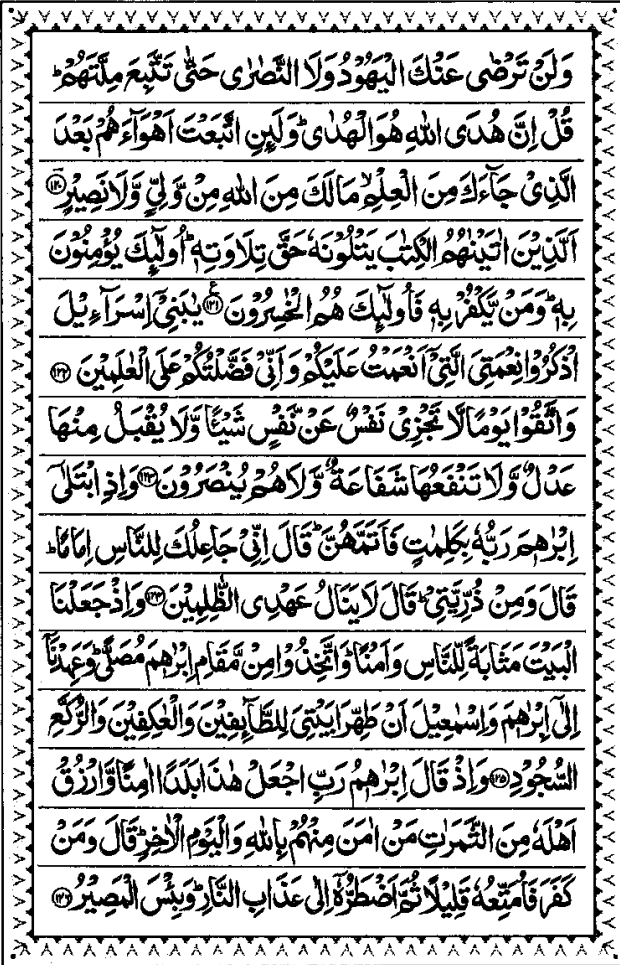 وَلَنْ تَرْضٰى عَنْكَ الْيَهُوْدُ وَلَا النَّصٰرٰى حَتّٰى تَتَّبِعَ مِلَّتَهُمْ ؕ
قُلْ اِنَّ هُدَى اللّٰهِ هُوَ الْهُدٰى ؕ وَلَئِنِ اتَّبَعْتَ اَهْوَآءَهُمْ بَعْدَ
الَّذِىْ جَآءَكَ مِنَ الْعِلْمِ ۙ مَا لَكَ مِنَ اللّٰهِ مِنْ وَّلِىٍّ وَّلَا نَصِيْرٍ ﴿۱۲۰﴾
اَلَّذِيْنَ اٰتَيْنٰهُمُ الْكِتٰبَ يَتْلُوْنَهٗ حَقَّ تِلَاوَتِهٖ ؕ اُولٰٓئِكَ يُؤْمِنُوْنَ
بِهٖ ؕ وَمَنْ يَّكْفُرْ بِهٖ فَاُولٰٓئِكَ هُمُ الْخٰسِرُوْنَ ﴿۱۲۱﴾ ع يٰبَنِىْٓ اِسْرَآءِيْلَ
اذْكُرُوْا نِعْمَتِىَ الَّتِىْٓ اَنْعَمْتُ عَلَيْكُمْ وَاَنِّىْ فَضَّلْتُكُمْ عَلَى الْعٰلَمِيْنَ ﴿۱۲۲﴾
وَاتَّقُوْا يَوْمًا لَّا تَجْزِىْ نَفْسٌ عَنْ نَّفْسٍ شَيْـًٔا وَّلَا يُقْبَلُ مِنْهَا
عَدْلٌ وَّلَا تَنْفَعُهَا شَفَاعَةٌ وَّلَا هُمْ يُنْصَرُوْنَ ﴿۱۲۳﴾ وَاِذِ ابْتَلٰٓى
اِبْرٰهٖمَ رَبُّهٗ بِكَلِمٰتٍ فَاَتَمَّهُنَّ ؕ قَالَ اِنِّىْ جَاعِلُكَ لِلنَّاسِ اِمَامًا ؕ
قَالَ وَمِنْ ذُرِّيَّتِىْ ؕ قَالَ لَا يَنَالُ عَهْدِى الظّٰلِمِيْنَ ﴿۱۲۴﴾ وَاِذْ جَعَلْنَا
الْبَيْتَ مَثَابَةً لِّلنَّاسِ وَاَمْنًا ؕ وَاتَّخِذُوْا مِنْ مَّقَامِ اِبْرٰهٖمَ مُصَلًّى ؕ وَعَهِدْنَآ
اِلٰٓى اِبْرٰهٖمَ وَاِسْمٰعِيْلَ اَنْ طَهِّرَا بَيْتِىَ لِلطَّآئِفِيْنَ وَالْعٰكِفِيْنَ وَالرُّكَّعِ
السُّجُوْدِ ﴿۱۲۵﴾ وَاِذْ قَالَ اِبْرٰهٖمُ رَبِّ اجْعَلْ هٰذَا بَلَدًا اٰمِنًا وَّارْزُقْ
اَهْلَهٗ مِنَ الثَّمَرٰتِ مَنْ اٰمَنَ مِنْهُمْ بِاللّٰهِ وَالْيَوْمِ الْاٰخِرِ ؕ قَالَ وَمَنْ
كَفَرَ فَاُمَتِّعُهٗ قَلِيْلًا ثُمَّ اَضْطَرُّهٗٓ اِلٰى عَذَابِ النَّارِ ؕ وَبِئْسَ الْمَصِيْرُ ﴿۱۲۶﴾